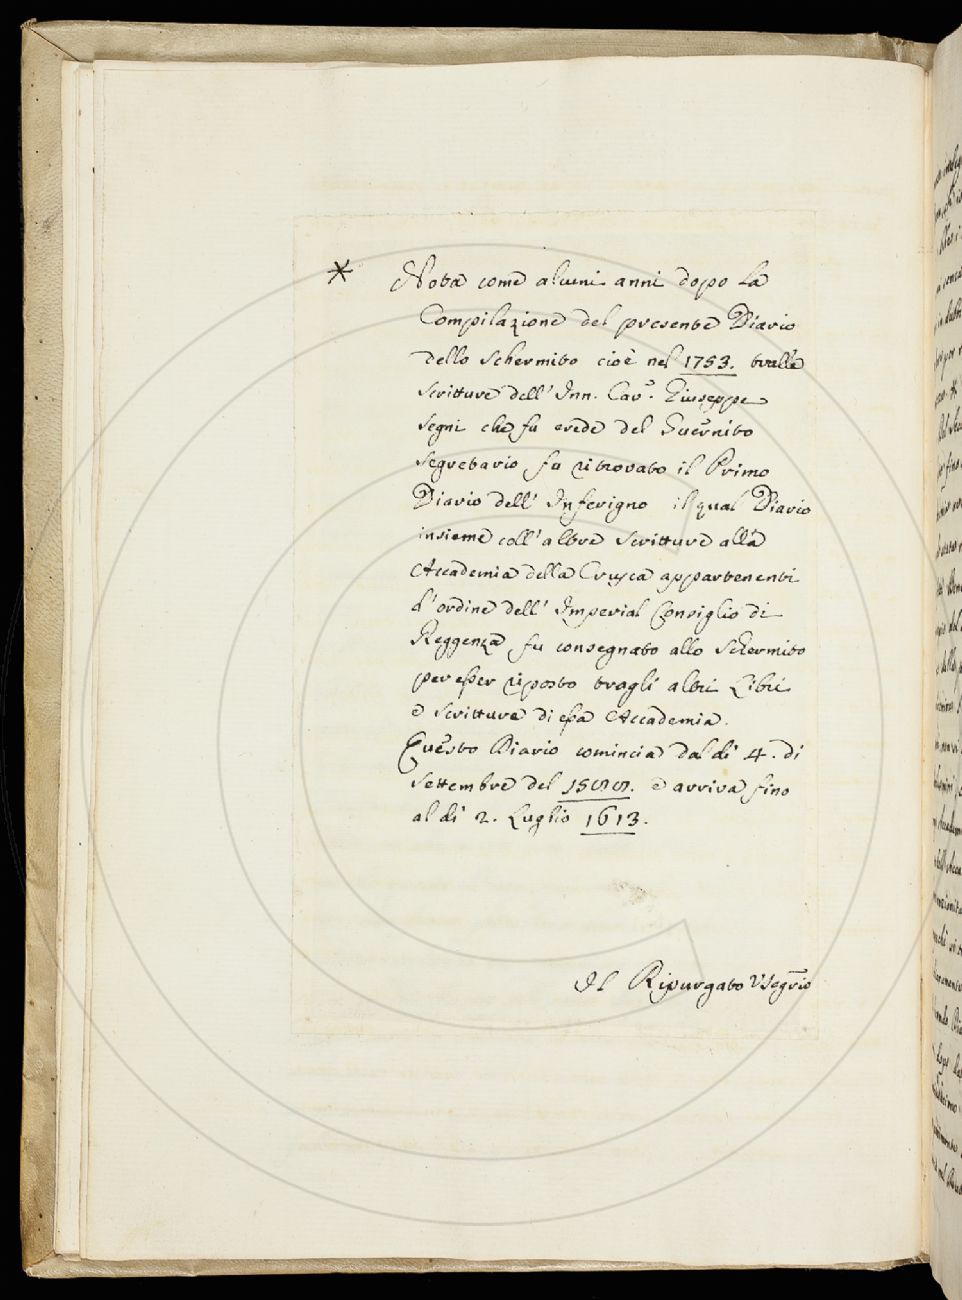 * Nota come alcuni anni dopo la
Compilazione del presente Diario
dello Schermito cioè nel 1753. tralle
scritture dell' Inn. Cav.r Giuseppe
Segni che fù erede del Guernito
Segretario fu ritrovato il Primo
Diario dell' Inferigno il qual Diario
insieme coll' altre scritture alla
Accademia della Crusca appartenenti
d'ordine dell' Imperial Consiglio di
Reggenza fu consegnato allo Schermito
per esser riposto tragli altri Libri
e scritture di essa Accademia.
Questo Diario comincia dal dì 4. di
Settembre del e arriva fino
al dì 2. Luglio 1613.
Il Ripurgato Segrio